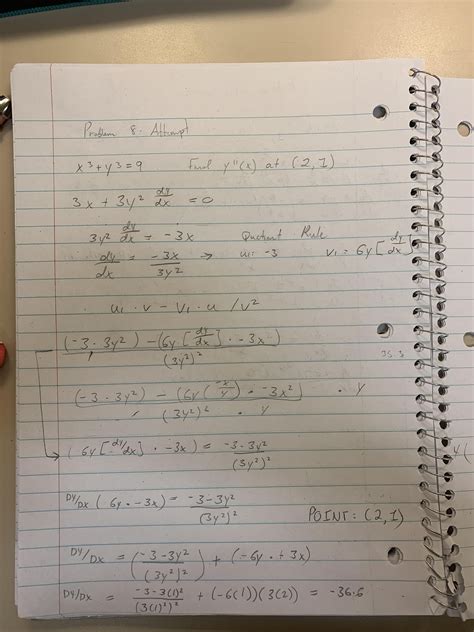 Problem 8. Attempt
x³+y³=9 Find y"(x) at (2,1)
3x + 3y² dy/dx = 0
3y² dy/dx = -3x Quotient Rule
dy/dx = -3x/3y² → u₁: -3 v₁ = 6y[dy/dx]
u₁ · v - v₁ · u / v²
(-3 · 3y²) - (6y[dy/dx] · -3x) / (3y²)²
(-3 · 3y²) - (6y(-x/y) · -3x²) / (3y²)² · y / y
(6y[dy/dx] · -3x) = -3-3y² / (3y²)²
DY/DX (6y · -3x) = -3-3y² / (3y²)²
POINT: (2,1)
DY/DX = (-3-3y² / (3y²)²) + (-6y · +3x)
DY/DX = -3-3(1)² / (3(1)²)² + (-6(1))(3(2)) = -36.6